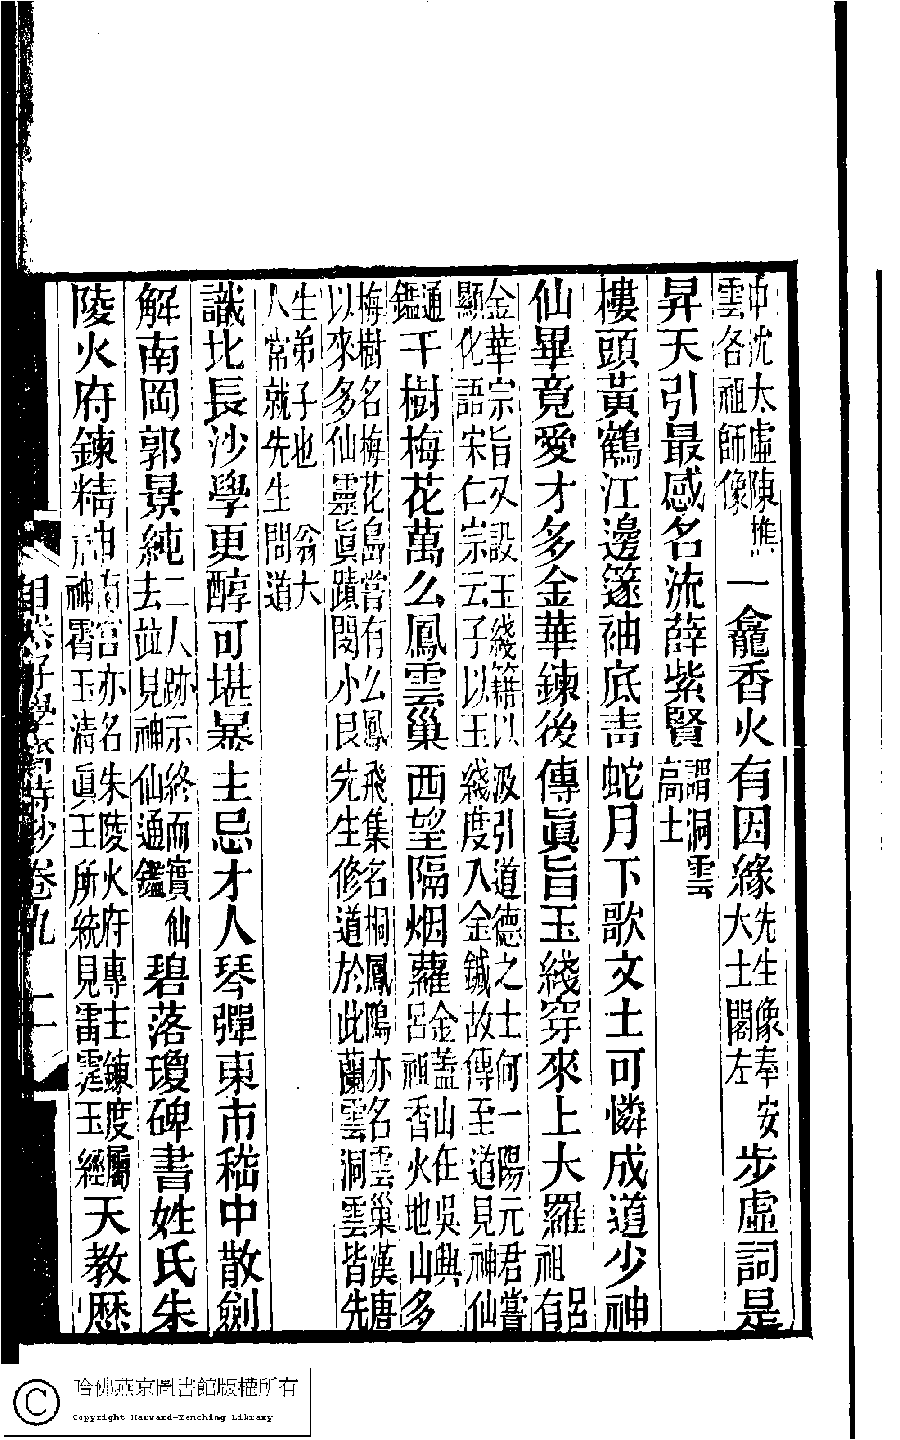 中沈太虛陳樵
雲各祖師像
一龕香火有因緣
先生像奉安
大士閣左
步虛詞是
昇天引最感名流薛紫賢
謂洞雲
高士
樓頭黃鶴江邊篴袖底青蛇月下歌文士可憐成道少神
仙畢竟愛才多金華鍊後傳眞旨玉綫穿來上大羅
呂
祖有
金華宗旨又設玉綫籍以汲引道德之士何一陽元君嘗
顯化語宋仁宗云子以玉綫度人金鍼故傳至道見神仙
通
鑑
千樹梅花萬么鳳雲巢西望隔烟蘿
金蓋山在吳興
呂祖香火地山多
梅樹名梅花島嘗有么鳳飛集名桐鳳隝亦名雲巢漢唐
以來多仙靈眞蹟閔小艮先生修道於此蘭雲洞雲皆先
生弟子也翁大
人常就先生問道
識比長沙學更醇可堪暴主忌才人琴彈東市嵇中散劍
解南岡郭景純
二人跡示終而實仙
去並見神仙通鑑
碧落瓊碑書姓氏朱
陵火府鍊精神
南宮亦名朱陵火府專主鍊度屬
神霄玉清眞王所統見雷霆玉經
天教歷
自然好學齋詩抄卷九
二
哈佛燕京圖書館版權所有
Copyright Harvard-Yenching Library